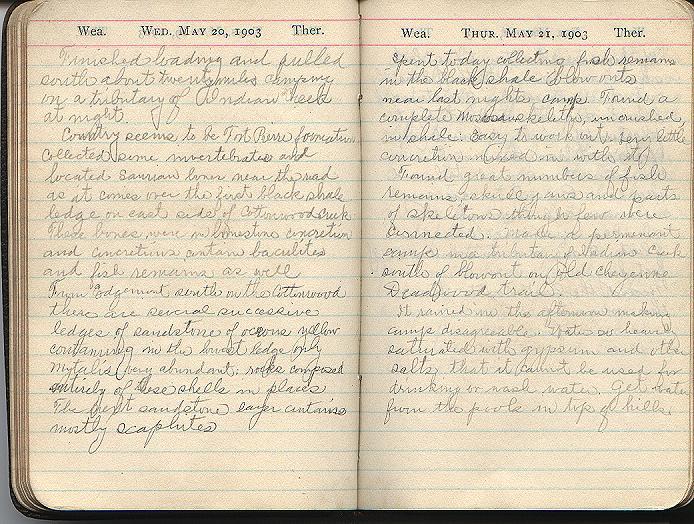 Wea. WED. MAY 20, 1903 Ther.
Finished loading and pulled
south about twenty miles camping
on a tributary of Indian Creek
at night.
Country seems to be Fort Pierre formation
collected some invertebrates and
located Saurian bones near the road
as it comes over the first black shale
ledge on east side of Cottonwood Creek
These bones were in limestone concretion
and concretions contain baculites
and fish remains as well
From Edgemont south on the Cottonwood
there are several successive
ledges of sandstone of ocrous yellow
containing in the lowest ledge only
Mytalis (very abundant; rocks composed
entirely of these shells in places
The next sandstone layer contains
mostly scaphites
Wea. THUR. MAY 21, 1903 Ther.
Spent today collecting fish remains
in the black shale blowouts
near last nights camp Found a
complete Mosasaur skeleton, uncrushed,
in shale. Easy to work out. very little
concretion mixed in with it.
Found great numbers of fish
remains, skulls jaws and parts
of skeletons though few were
connected. Made a permanent
camp on a tributary of Indian Creek
south of blowout on old Cheyenne
Deadwood trail.
It rained in the afternoon making
camp disagreeable. Water so heavily
saturated with gypsum and other
salts that it cannot be used for
drinking or wash water. Get water
from the pools in top of hills.